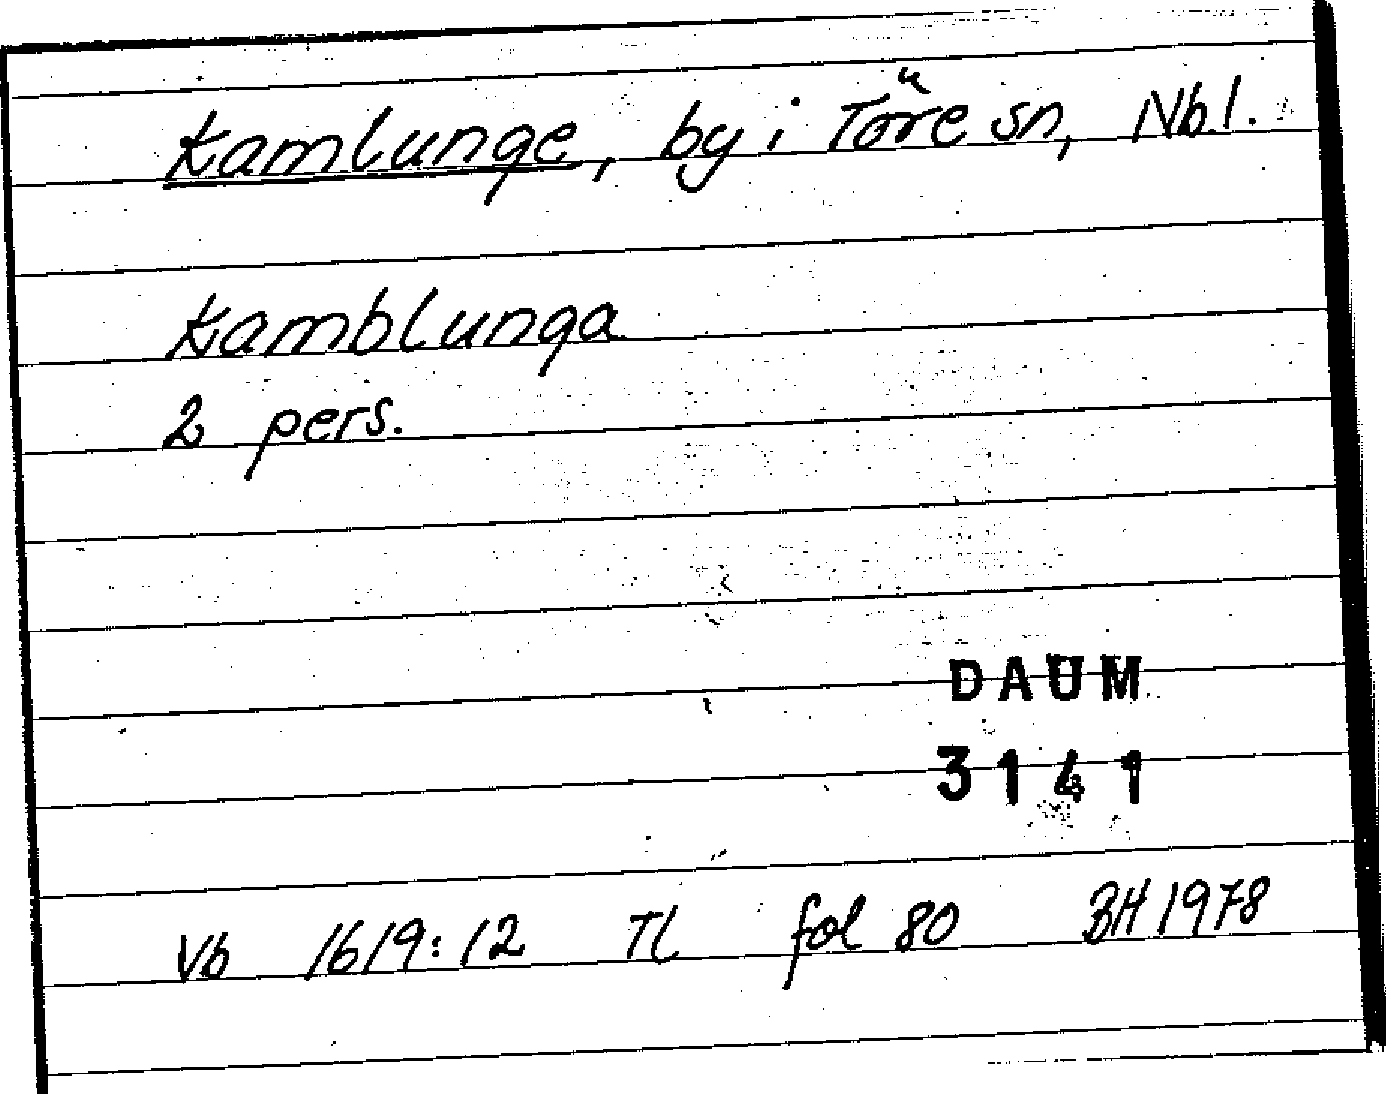 Kamlunge, by i Töre sn, Nb.l.
Kamblunga
2 pers.
DAUM
3141
Vb 1619:12 Tl fol 80 BH 1978